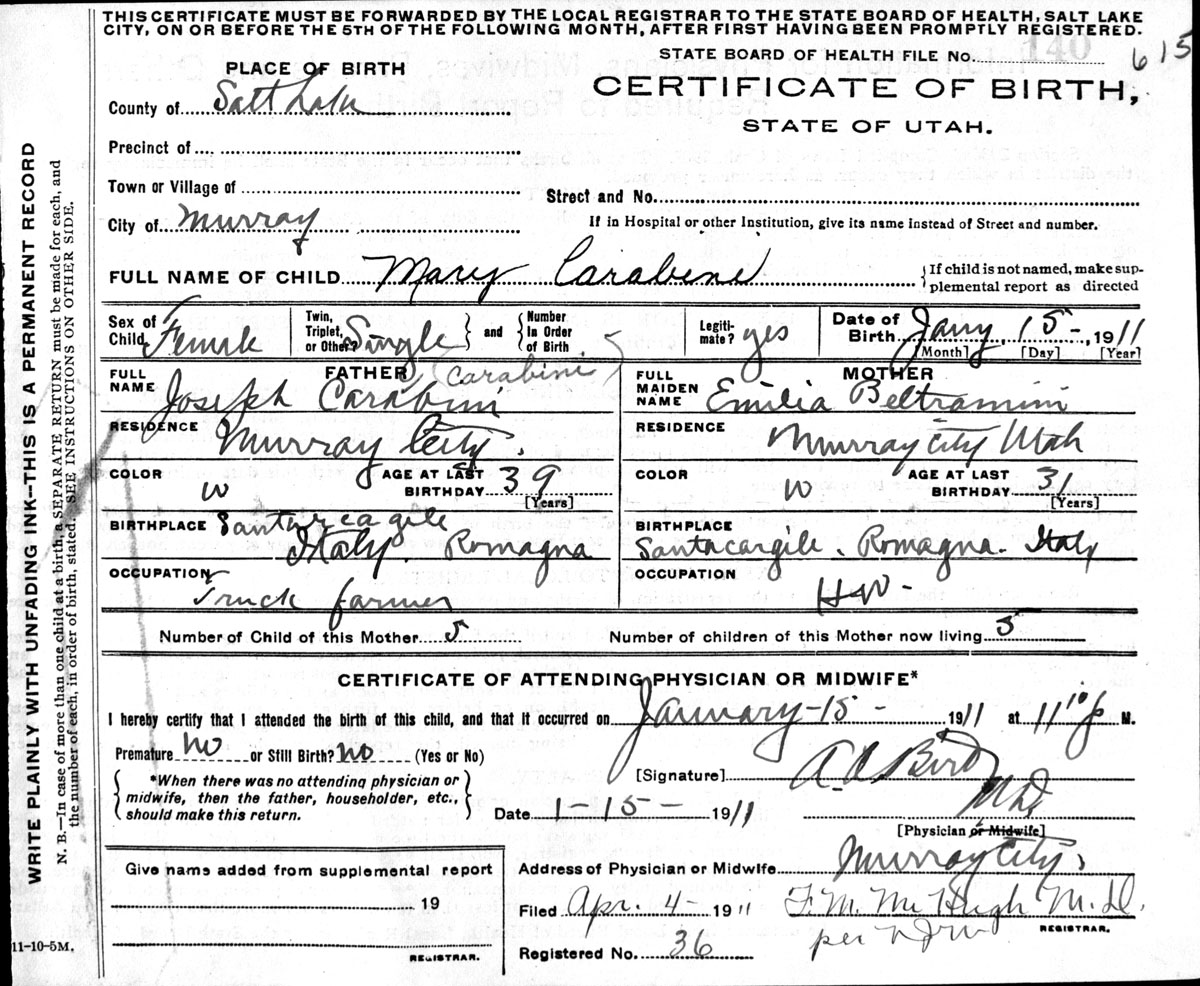 THIS CERTIFICATE MUST BE FORWARDED BY THE LOCAL REGISTRAR TO THE STATE BOARD OF HEALTH, SALT LAKE
CITY, ON OR BEFORE THE 5TH OF THE FOLLOWING MONTH, AFTER FIRST HAVING BEEN PROMPTLY REGISTERED.
STATE BOARD OF HEALTH FILE No. 140 615
PLACE OF BIRTH
CERTIFICATE OF BIRTH,
STATE OF UTAH.
County of Salt Lake
Precinct of
Town or Village of
Street and No.
City of Murray
If in Hospital or other Institution, give its name instead of Street and number.
FULL NAME OF CHILD Mary Carabine
If child is not named, make sup-
plemental report as directed
Sex of Child Female
Twin, Triplet, or Other? Single
and Number In Order of Birth
Legiti-mate? yes
Date of Birth Jany 15 - , 1911
[Month] [Day] [Year]
FATHER
FULL NAME Joseph Carabini (Carabini)
MOTHER
FULL MAIDEN NAME Emilia Beltramini
RESIDENCE Murray City.
RESIDENCE Murray City Utah
COLOR W AGE AT LAST BIRTHDAY 39 [Years]
COLOR W AGE AT LAST BIRTHDAY 31 [Years]
BIRTHPLACE Santarcagile
Italy. Romagna
BIRTHPLACE
Santacargile. Romagna. Italy
OCCUPATION
Truck farmer
OCCUPATION
HW -
Number of Child of this Mother 5
Number of children of this Mother now living 5
CERTIFICATE OF ATTENDING PHYSICIAN OR MIDWIFE*
I hereby certify that I attended the birth of this child, and that it occurred on January - 15 - 1911 at 11 10 p M.
Premature No or Still Birth? No (Yes or No)
*When there was no attending physician or
midwife, then the father, householder, etc.,
should make this return.
[Signature] A. A. Bird
M.D.
Date 1-15- 1911
[Physician or Midwife]
Address of Physician or Midwife Murray City.
Give name added from supplemental report
19
REGISTRAR.
Filed Apr. 4 - 1911 F. M. McHugh M.D.
per
REGISTRAR.
Registered No. 36
11-10-5M.
WRITE PLAINLY WITH UNFADING INK—THIS IS A PERMANENT RECORD
N. B.—In case of more than one child at a birth, a SEPARATE RETURN must be made for each, and
the number of each, in order of birth, stated. SEE INSTRUCTIONS ON OTHER SIDE.